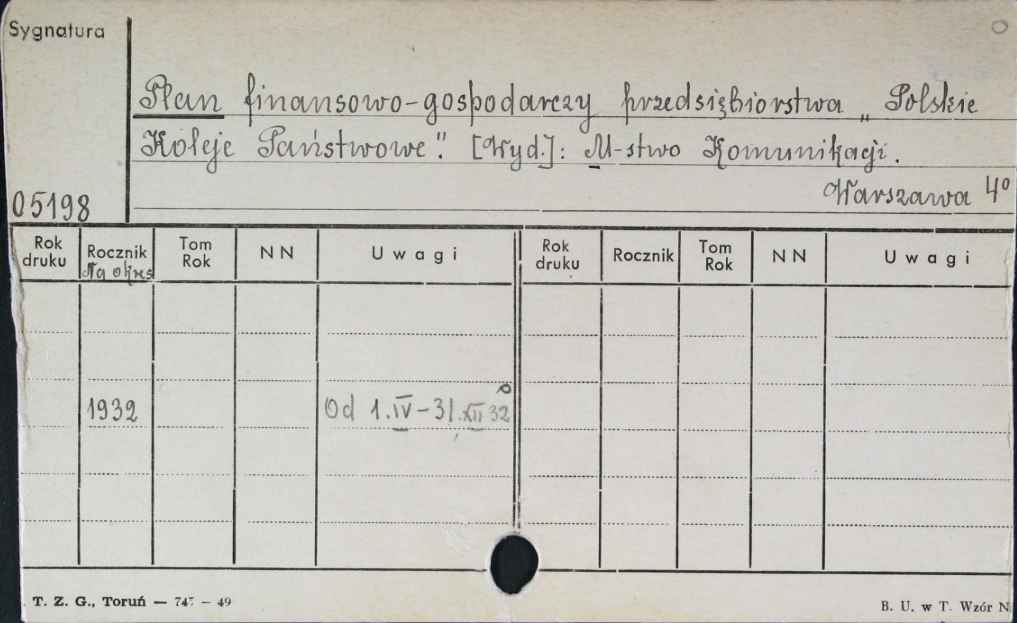 Sygnatura
Plan finansowo-gospodarczy przedsiębiorstwa „Polskie
Koleje Państwowe". [Wyd.]: M-stwo Komunikacji.
Warszawa 4º
05198
Rok druku Rocznik Na okres Tom Rok NN Uwagi Rok druku Rocznik Tom Rok NN Uwagi
1932 Od 1.IV-31.XII 32
T. Z. G., Toruń — 49 B. U. w T. Wzór N